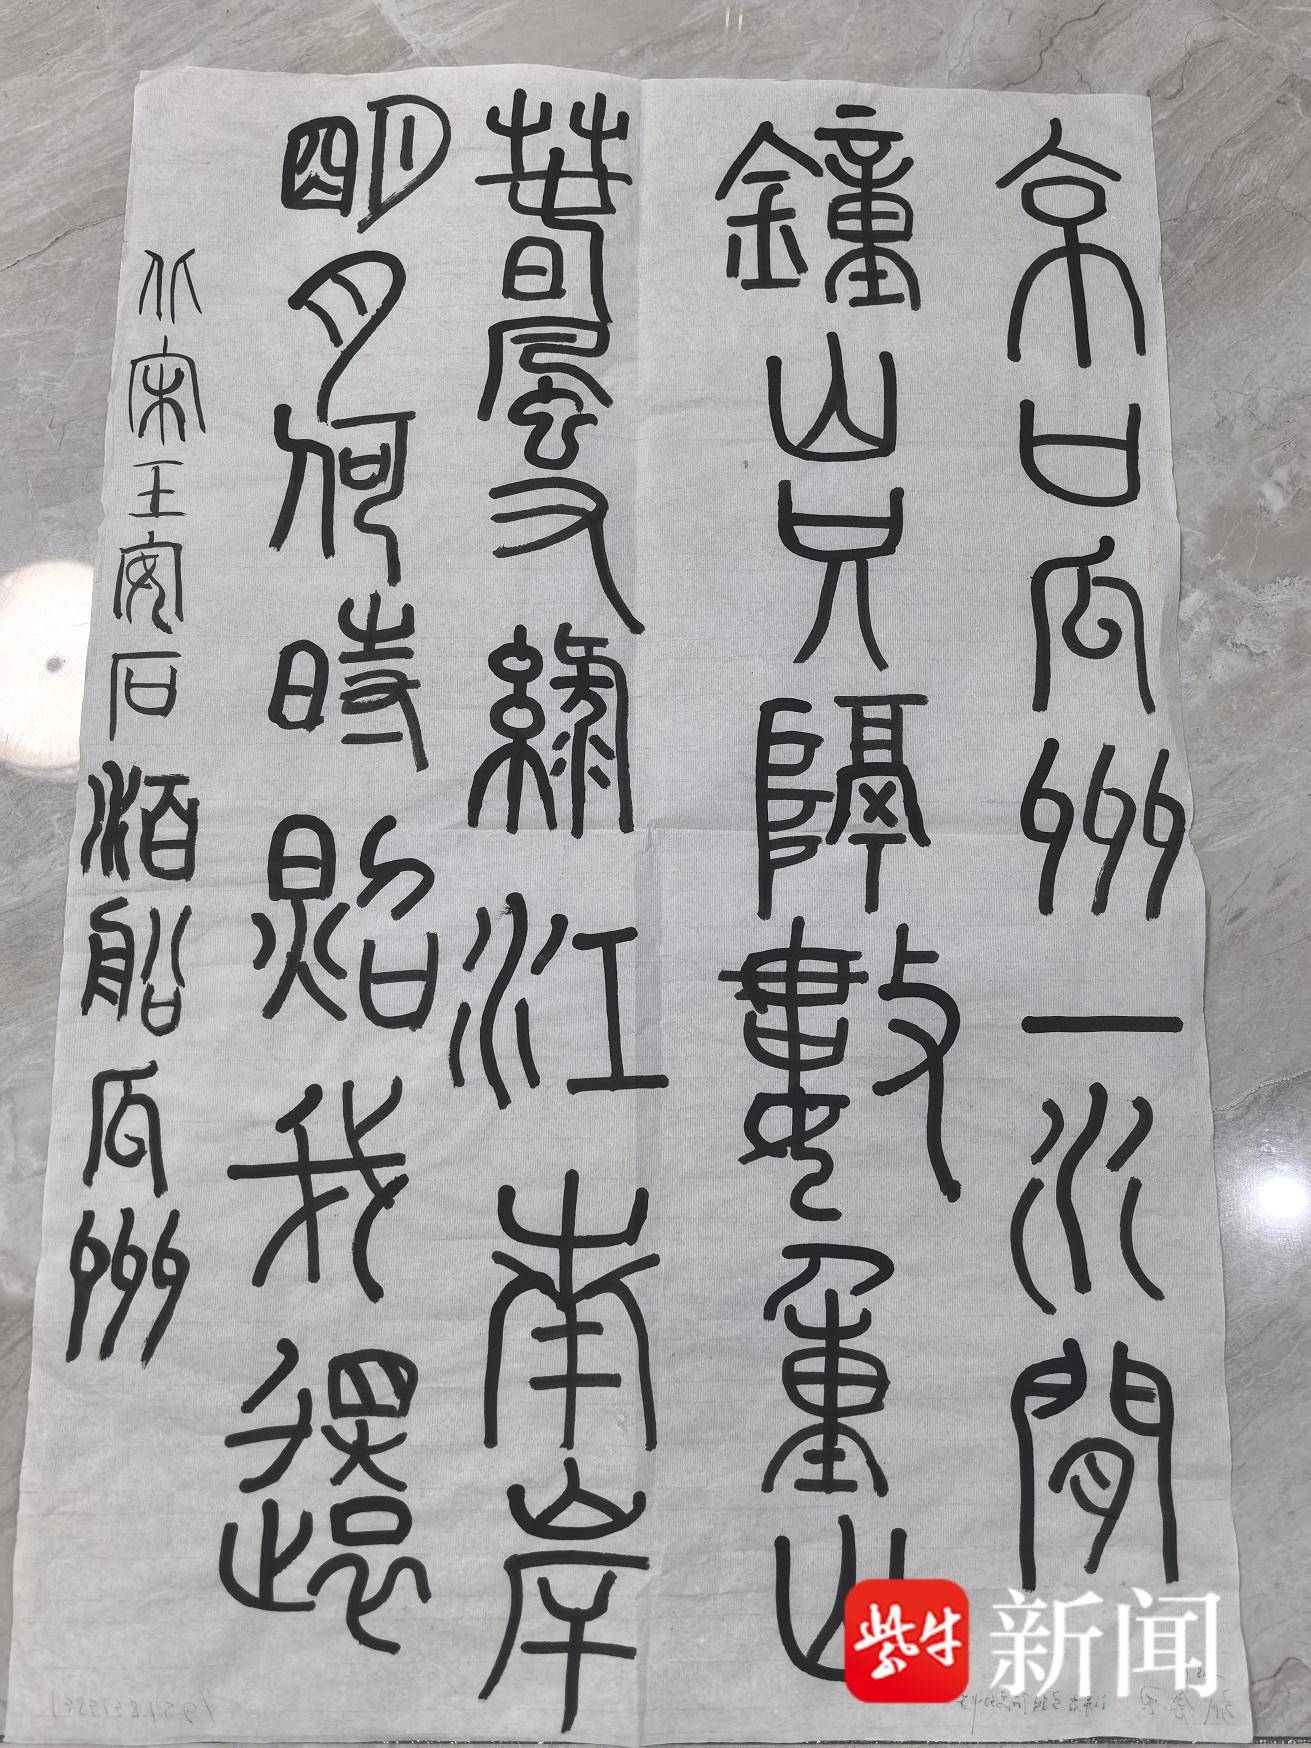 京口瓜州一水間
鐘山只隔數重山
春風又綠江南岸
明月何時照我還
北宋王安石泊船瓜州
紫牛新闻